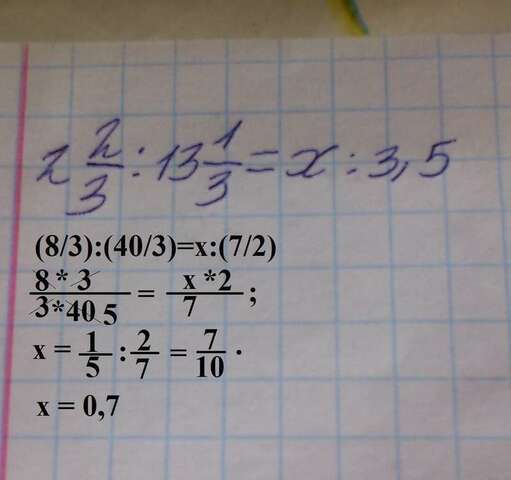 2 2/3 : 13 1/3 = x : 3,5
(8/3):(40/3)=x:(7/2)
8 * 3 / 3*40 5 = x *2 / 7 ;
x = 1/5 : 2/7 = 7/10 .
x = 0,7